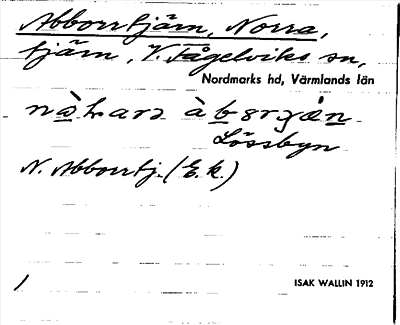 Abborrtjärn, Norra,
tjärn, V. Fågelviks sn,
Nordmarks hd, Värmlands län
Lössbyn
N. Abborrtj. (E. k.)
/
ISAK WALLIN 1912